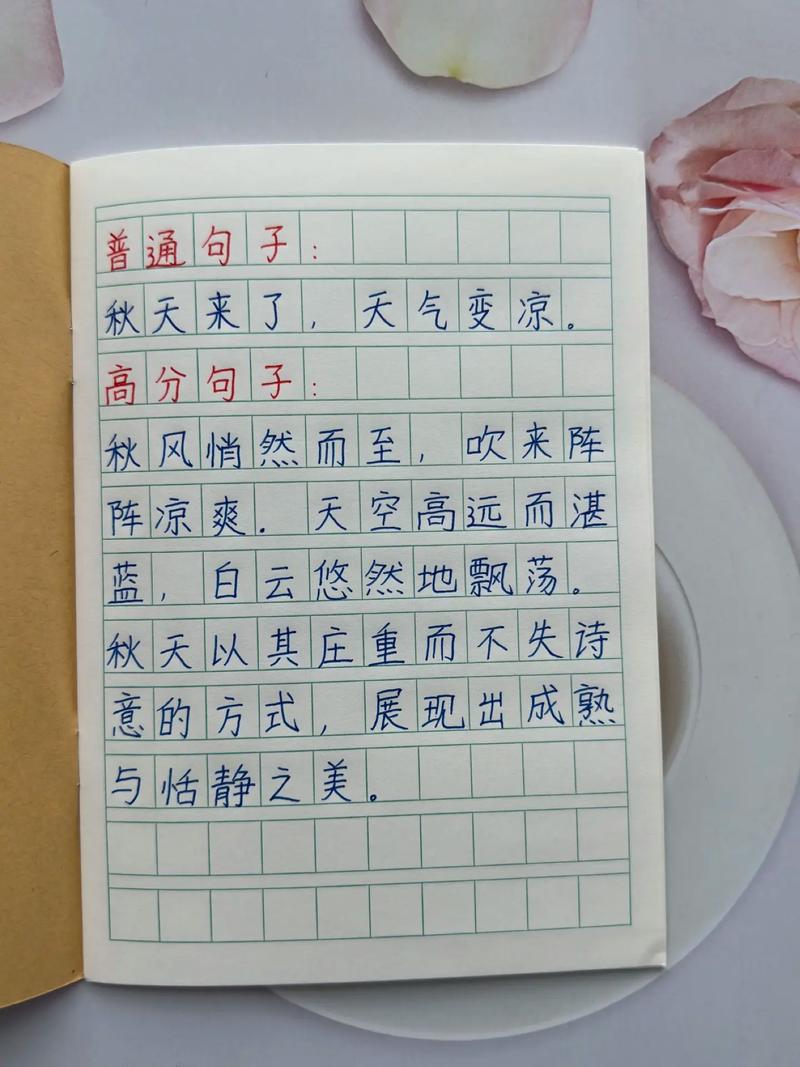 普通句子：
秋天来了，天气变凉。
高分句子：
秋风悄然而至，吹来阵
阵凉爽．天空高远而湛
蓝，白云悠然地飘荡。
秋天以其庄重而不失诗
意的方式，展现出成熟
与恬静之美。